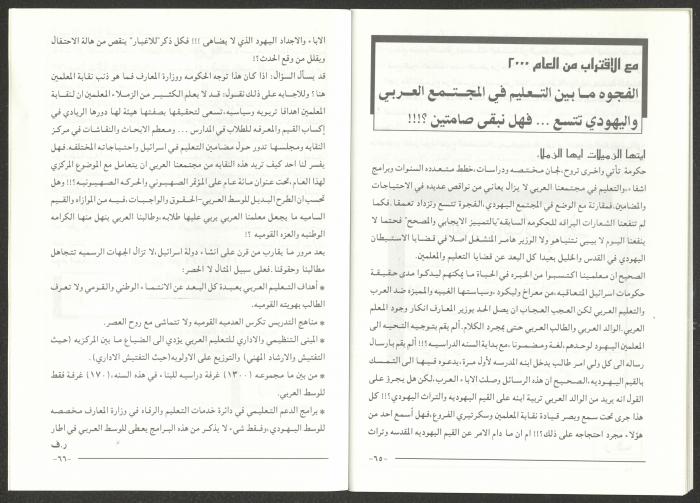 مع الاقتراب من العام ٢٠٠٠
الفجوه ما بين التعليم في المجتمع العربي
واليهودي تتسع ... فهل نبقى صامتين ؟!!!
ايتها الزميلات ايها الزملاء
حكومة تأتي واخرى تروح، لجان مختصه ودراسات، خطط متعدده السنوات وبرامج
اشفاء، والتعليم في مجتمعنا العربي لا يزال يعاني من نواقص عديده في الاحتياجات
والمضامين. فمقارنة مع الوضع في المجتمع اليهودي، الفجوة تتسع وتزداد تعمقا. فكما
لم تنفعنا الشعارات البراقه للحكومه السابقه "بالتمييز الايجابي والمصحح" فحتما لا
ينفعنا اليوم لا بيبي نتنياهو ولا الوزير هامر المنشغل اصلا في قضايا الاستيطان
اليهودي في القدس والخليل بعيدا كل البعد عن قضايا التعليم والمعلمين.
الصحيح ان معلمينا اكتسبوا من الخبره في الحياة ما يكفهم ليدكوا مدى حقيقة
حكومات اسرائيل المتعاقبه، من معراخ وليكود، وسياستهما الغبيه والمميزه ضد العرب
والتعليم العربي لكن العجب العجاب ان يصل الحد بوزير المعارف انكار وجود المعلم
العربي. الوالد العربي والطالب العربي حتى بمجرد الكلام. ألم يقم بتوجيه التحيه الى
المعلمين اليهود لوحدهم، لغة ومضمونا، مع بداية السنه الدراسيه!!! ألم يقم بارسال
رساله الى كل ولي امر طالب يدخل ابنه المدرسه لأول مرة، يدعوه فيها الى التمسك
بالقيم اليهوديه. الصحيح ان هذه الرسائل وصلت الاباء العرب، لكن هل يجرؤ على
القول أنه يريد من الوالد العربي تربية ابنه على القيم اليهوديه والتراث اليهودي؟!! كل
هذا جرى تحت سمع وبصر قيادة نقابة المعلمين وسكرتيري الفروع، فهل أسمع احد من
هؤلاء مجرد احتجاجه على ذلك؟!! ام ان ما دام الامر عن القيم اليهوديه المقدسه وتراث
-٦٥-
الاباء والاجداد اليهود الذي لا يضاهى !!! فكل ذكر "للاغيار" ينقص من هالة الاحتفال
ويقلل من وقع الحدث؟!
قد يسأل السؤال: اذا كان هذا توجه الحكومه ووزارة المعارف فما هو ذنب نقابة المعلمين
هنا؟ وللاجابه على ذلك نقول: قد لا يعلم الكثير من الزملاء المعلمين ان لنقابة
المعلمين اهدافا تربويه وسياسيه، تسعى لتحقيقها بصفتها هيئة لها دورها الريادي في
إكساب القيم والمعرفه للطلاب في المدارس ... ومعظم الابحاث والنقاشات في مركز
النقابه ومجلسها تدور حول مضامين التعليم في اسرائيل واحتياجاته المختلفه. فهل
يفسر لنا احد كيف تريد هذه النقابه من مجتمعنا العربي ان يتعامل مع الموضوع المركزي
لهذا العام، تحت عنوان مائة عام على المؤتمر الصهيوني والحركه الصهيونيه؟!! وهل
تحسب ان الطرح البديل للوسط العربي-الحقوق والواجبات، فيه من الموازاه والقيم
الساميه ما يجعل معلمنا العربي يربي عليها طلابه، وطالبنا العربي ينهل منها الكرامه
الوطنيه والعزه القوميه ؟!
بعد مرور ما يقارب من قرن على انشاء دولة اسرائيل، لا تزال الجهات الرسميه تتجاهل
مطالبنا وحقوقنا. فعلى سبيل المثال لا الحصر:
* أهداف التعليم العربي بعيدة كل البعد عن الانتماء الوطني والقومي ولا تعرف
الطالب بهويته القوميه.
* مناهج التدريس تكرس العدميه القوميه ولا تتماشى مع روح العصر.
* المبنى التنظيمي والاداري للتعليم العربي يؤدي الى الضياع ما بين المركزيه (حيث
التفتيش والارشاد المهني) والتوزيع على الاولويه (حيث التفتيش الاداري).
* من بين ما مجموعه (١٣٠٠) غرفة دراسيه للبناء في هذه السنه، (١٧٠) غرفة فقط
للوسط العربي.
* برامج الدعم التعليمي في دائرة خدمات التعليم والرفاه في وزارة المعارف مخصصه
للوسط اليهودي، وفقط شيء لا يذكر من هذه البرامج يعطى للوسط العربي في اطار
ر.ف
-٦٦-